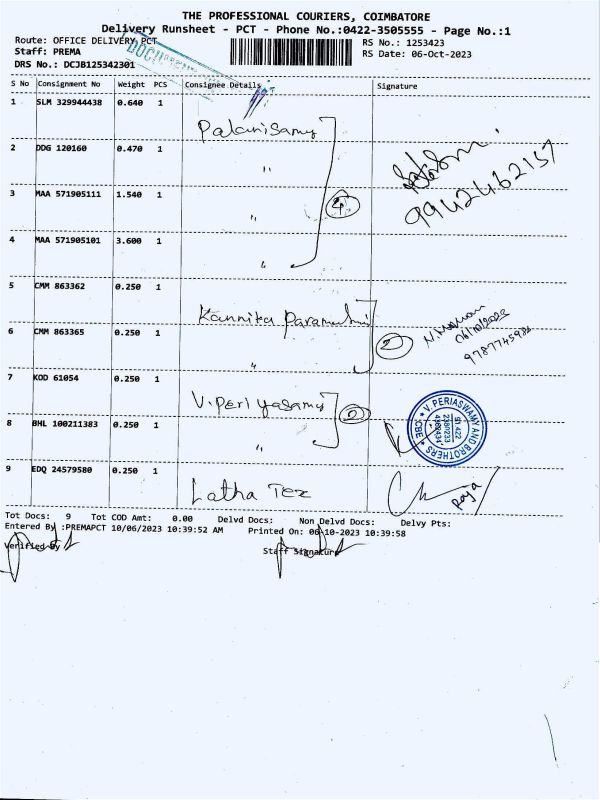 THE PROFESSIONAL COURIERS, COIMBATORE
Delivery Runsheet - PCT - Phone No.:0422-3505555 - Page No.:1
Route: OFFICE DELIVERY PCT
Staff: PREMA
DRS No.: DCJB125342301
RS No.: 1253423
RS Date: 06-Oct-2023
S No Consignment No Weight PCS Consignee Details Signature
1 SLM 329944438 0.640 1 Palanisamy
2 DDG 120160 0.470 1 "
9942462157
3 MAA 571905111 1.540 1 " 4
4 MAA 571905101 3.600 1 "
5 CMM 863362 0.250 1 Kannika Parameshwari
06/10/2023
6 CMM 863365 0.250 1 " 2
7 KOD 61054 0.250 1 V. Periyasamy 2
8 BHL 100211383 0.250 1 "
V. PERIASWAMY AND BROTHERS
CBE
9 EDQ 24579580 0.250 1 Latha Tex
Raja
Tot Docs: 9 Tot COD Amt: 0.00 Delvd Docs: Non Delvd Docs: Delvy Pts:
Entered By :PREMAPCT 10/06/2023 10:39:52 AM Printed On: 06-10-2023 10:39:58
Verified By Staff Signature